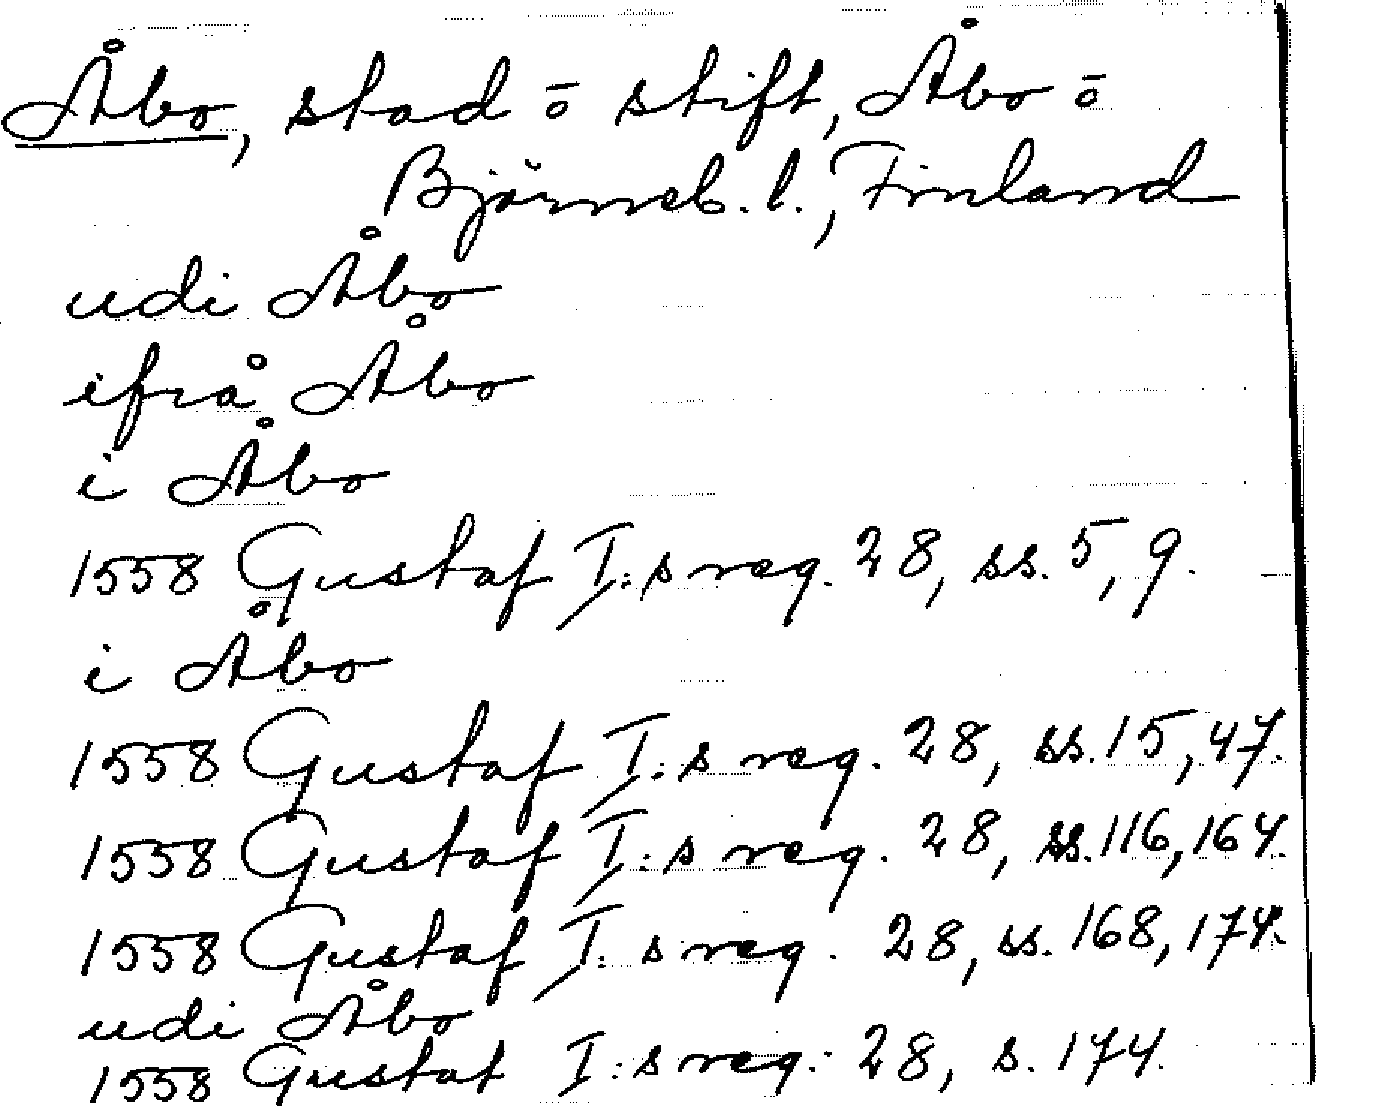 Åbo, stad ō stift, Åbo ō
Björneb. l., Finland
udi Åbo
ifrå Åbo
i Åbo
1558 Gustaf I:s reg. 28, ss. 5, 9.
i Åbo
1558 Gustaf I:s reg. 28, ss. 15, 47.
1558 Gustaf I:s reg. 28, ss. 116, 164.
1558 Gustaf I:s reg. 28, ss. 168, 174.
udi Åbo
1558 Gustaf I:s reg. 28, s. 174.